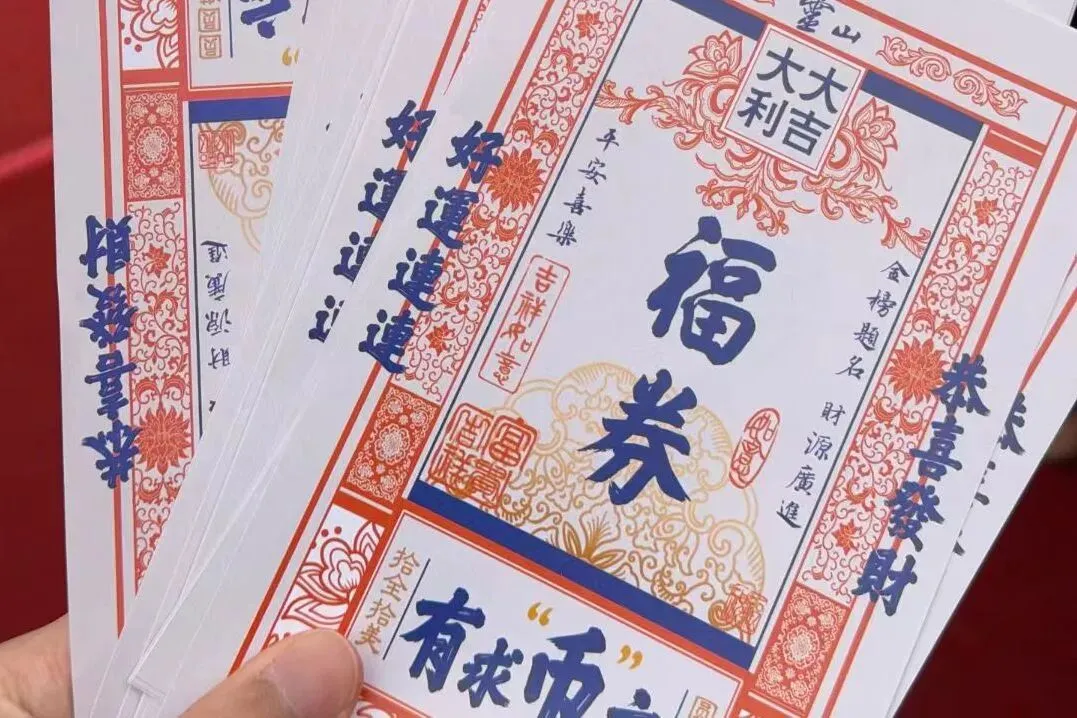 靈山
大吉
大利
福券
平安喜樂
金榜題名 財源廣進
吉祥如意
富貴
吉祥
如意
好運連連
恭喜發財
拾全拾美
有求“币
好運連
恭喜發財
財源廣進